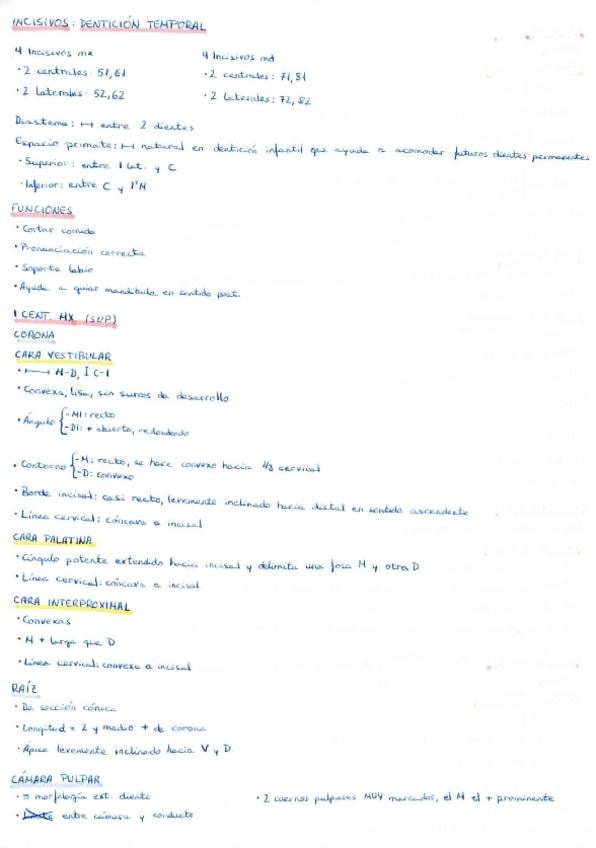 INCISIVOS: DENTICIÓN TEMPORAL
4 Incisivos mx
4 Incisivos md
· 2 centrales: 51, 61
· 2 centrales: 71, 81
· 2 Laterales: 52, 62
· 2 Laterales: 72, 82
Diastema: ⟼ entre 2 dientes
Espacio primate: ⟼ natural en dentición infantil que ayuda a acomodar futuros dientes permanentes
· Superior: entre I lat. y C
· Inferior: entre C y 1ºM
FUNCIONES
· Cortar comida
· Pronunciación correcta
· Soporte labio
· Ayuda a guiar mandíbula en sentido post.
I CENT. MX (SUP)
CORONA
CARA VESTIBULAR
· ⟼ M-D, I C-I
· Convexa, lisa, sin surcos de desarrollo
· Ángulo { -MI: recto
-DI: + abierto, redondeado
· Contorno { -M: recto, se hace convexo hacia 1/3 cervical
-D: convexo
· Borde incisal: casi recto, levemente inclinado hacia distal en sentido ascendente
· Línea cervical: cóncava a incisal
CARA PALATINA
· Cíngulo potente extendido hacia incisal y delimita una fosa M y otra D
· Línea cervical: cóncava a incisal
CARA INTERPROXIMAL
· Convexas
· M + larga que D
· Línea cervical: convexa a incisal
RAÍZ
· De sección cónica
· Longitud = 2 y medio + de corona
· Ápice levemente inclinado hacia V y D
CÁMARA PULPAR
· = morfología ext. diente
· 2 cuernos pulpares MUY marcados, el M el + prominente
· entre cámara y conducto